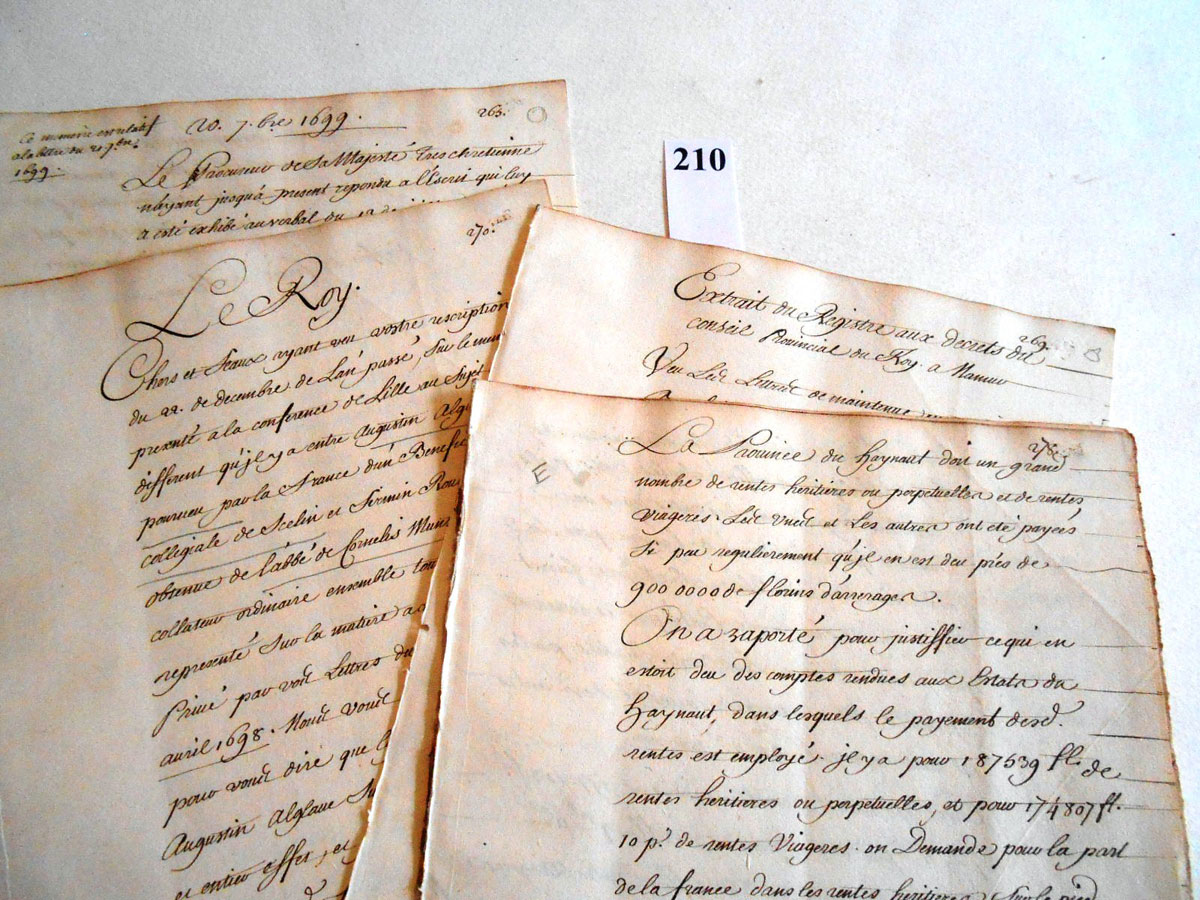 Ce memoire est relatif
a la lettre du 21 9bre
1699.
20. 7.bre 1699.
263.
Le Procureur de Sa Majesté tres chretienne
n'ayant jusqu'à present repondu a l'Escrit qui luy
a esté exhibé au verbal du 12
210
270.
Le Roy.
Chers et feaux ayant veu vostre rescription
du 22. de decembre de l'an passé, sur le
presenté a la conference de Lille au Sujet
different qu'jl y a entre Augustin
pourveu par la France d'un Benefi
collegiale de Seclin et Firmin
obtenue de l'abbé de Cornelis
collateur ordinaire ensemble tou
representé sur la matiere a
Privé par vous Lettres du
avril 1698. Nous vous
pour vous dire que
Augustin Alglaue
et entier effet, et
Extrait du Registre aux decrets du
269.
conseil Provincial du Roy a Namur
Veu les Lettres de maintenue
E
La Province du haynaut doit un grand
278.
nombre de rentes heritieres ou perpetuelles et de rentes
viageres. Les unes et Les autres ont été payeés
si peu regulierement qu'jl en est deu prés de
900 0000 de florins d'arrerages.
On a raporté pour justiffier ce qui en
estoit deu des comptes rendues aux Estats du
haynaut, dans lesquels le payement desd.
rentes est employé. jl y a pour 187539 fl. de
rentes heritieres ou perpetuelles, et pour 174807 fl.
10 p. de rentes Viageres. on Demande pour la part
de la france dans les rentes heritieres sur le pied